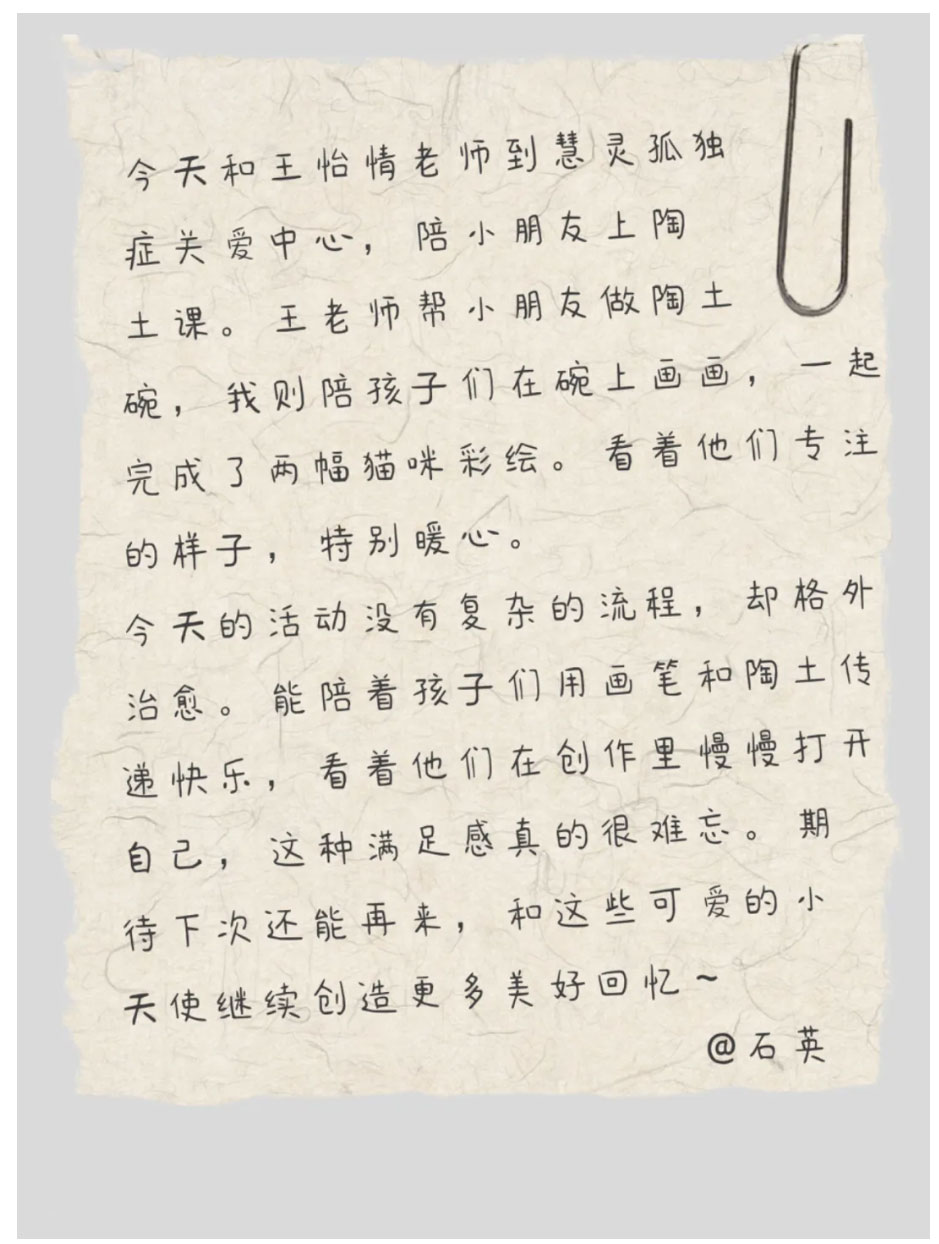 今天和王怡情老师到慧灵孤独
症关爱中心，陪小朋友上陶
土课。王老师帮小朋友做陶土
碗，我则陪孩子们在碗上画画，一起
完成了两幅猫咪彩绘。看着他们专注
的样子，特别暖心。
今天的活动没有复杂的流程，却格外
治愈。能陪着孩子们用画笔和陶土传
递快乐，看着他们在创作里慢慢打开
自己，这种满足感真的很难忘。期
待下次还能再来，和这些可爱的小
天使继续创造更多美好回忆~
@石英